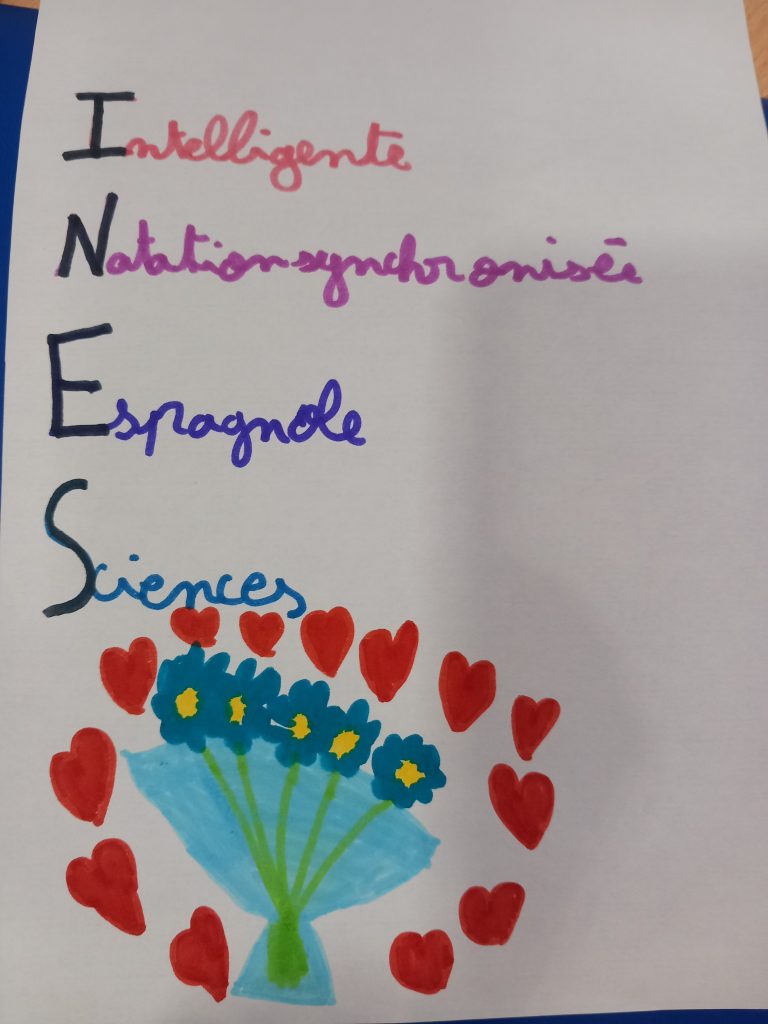 Intelligente
Natation synchronisée
Espagnole
Sciences